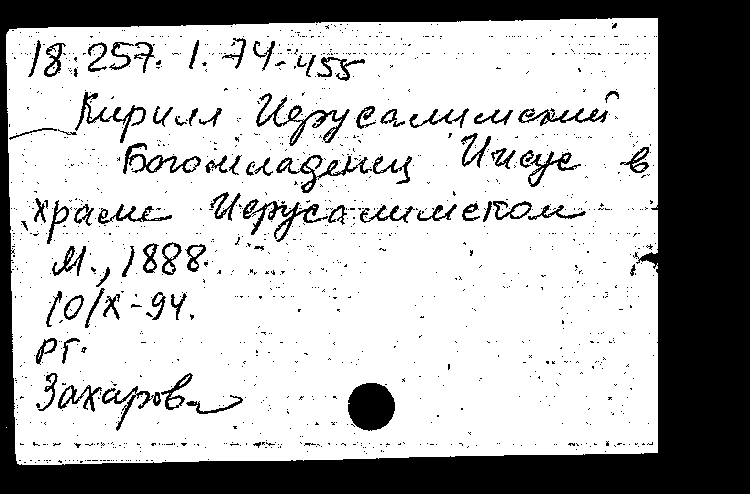 18.257.1.74-455
Кирилл Иерусалимский
Богомладенец Иисус в
храме Иерусалимском
М., 1888.
10/X-94.
РГ.
Захарова